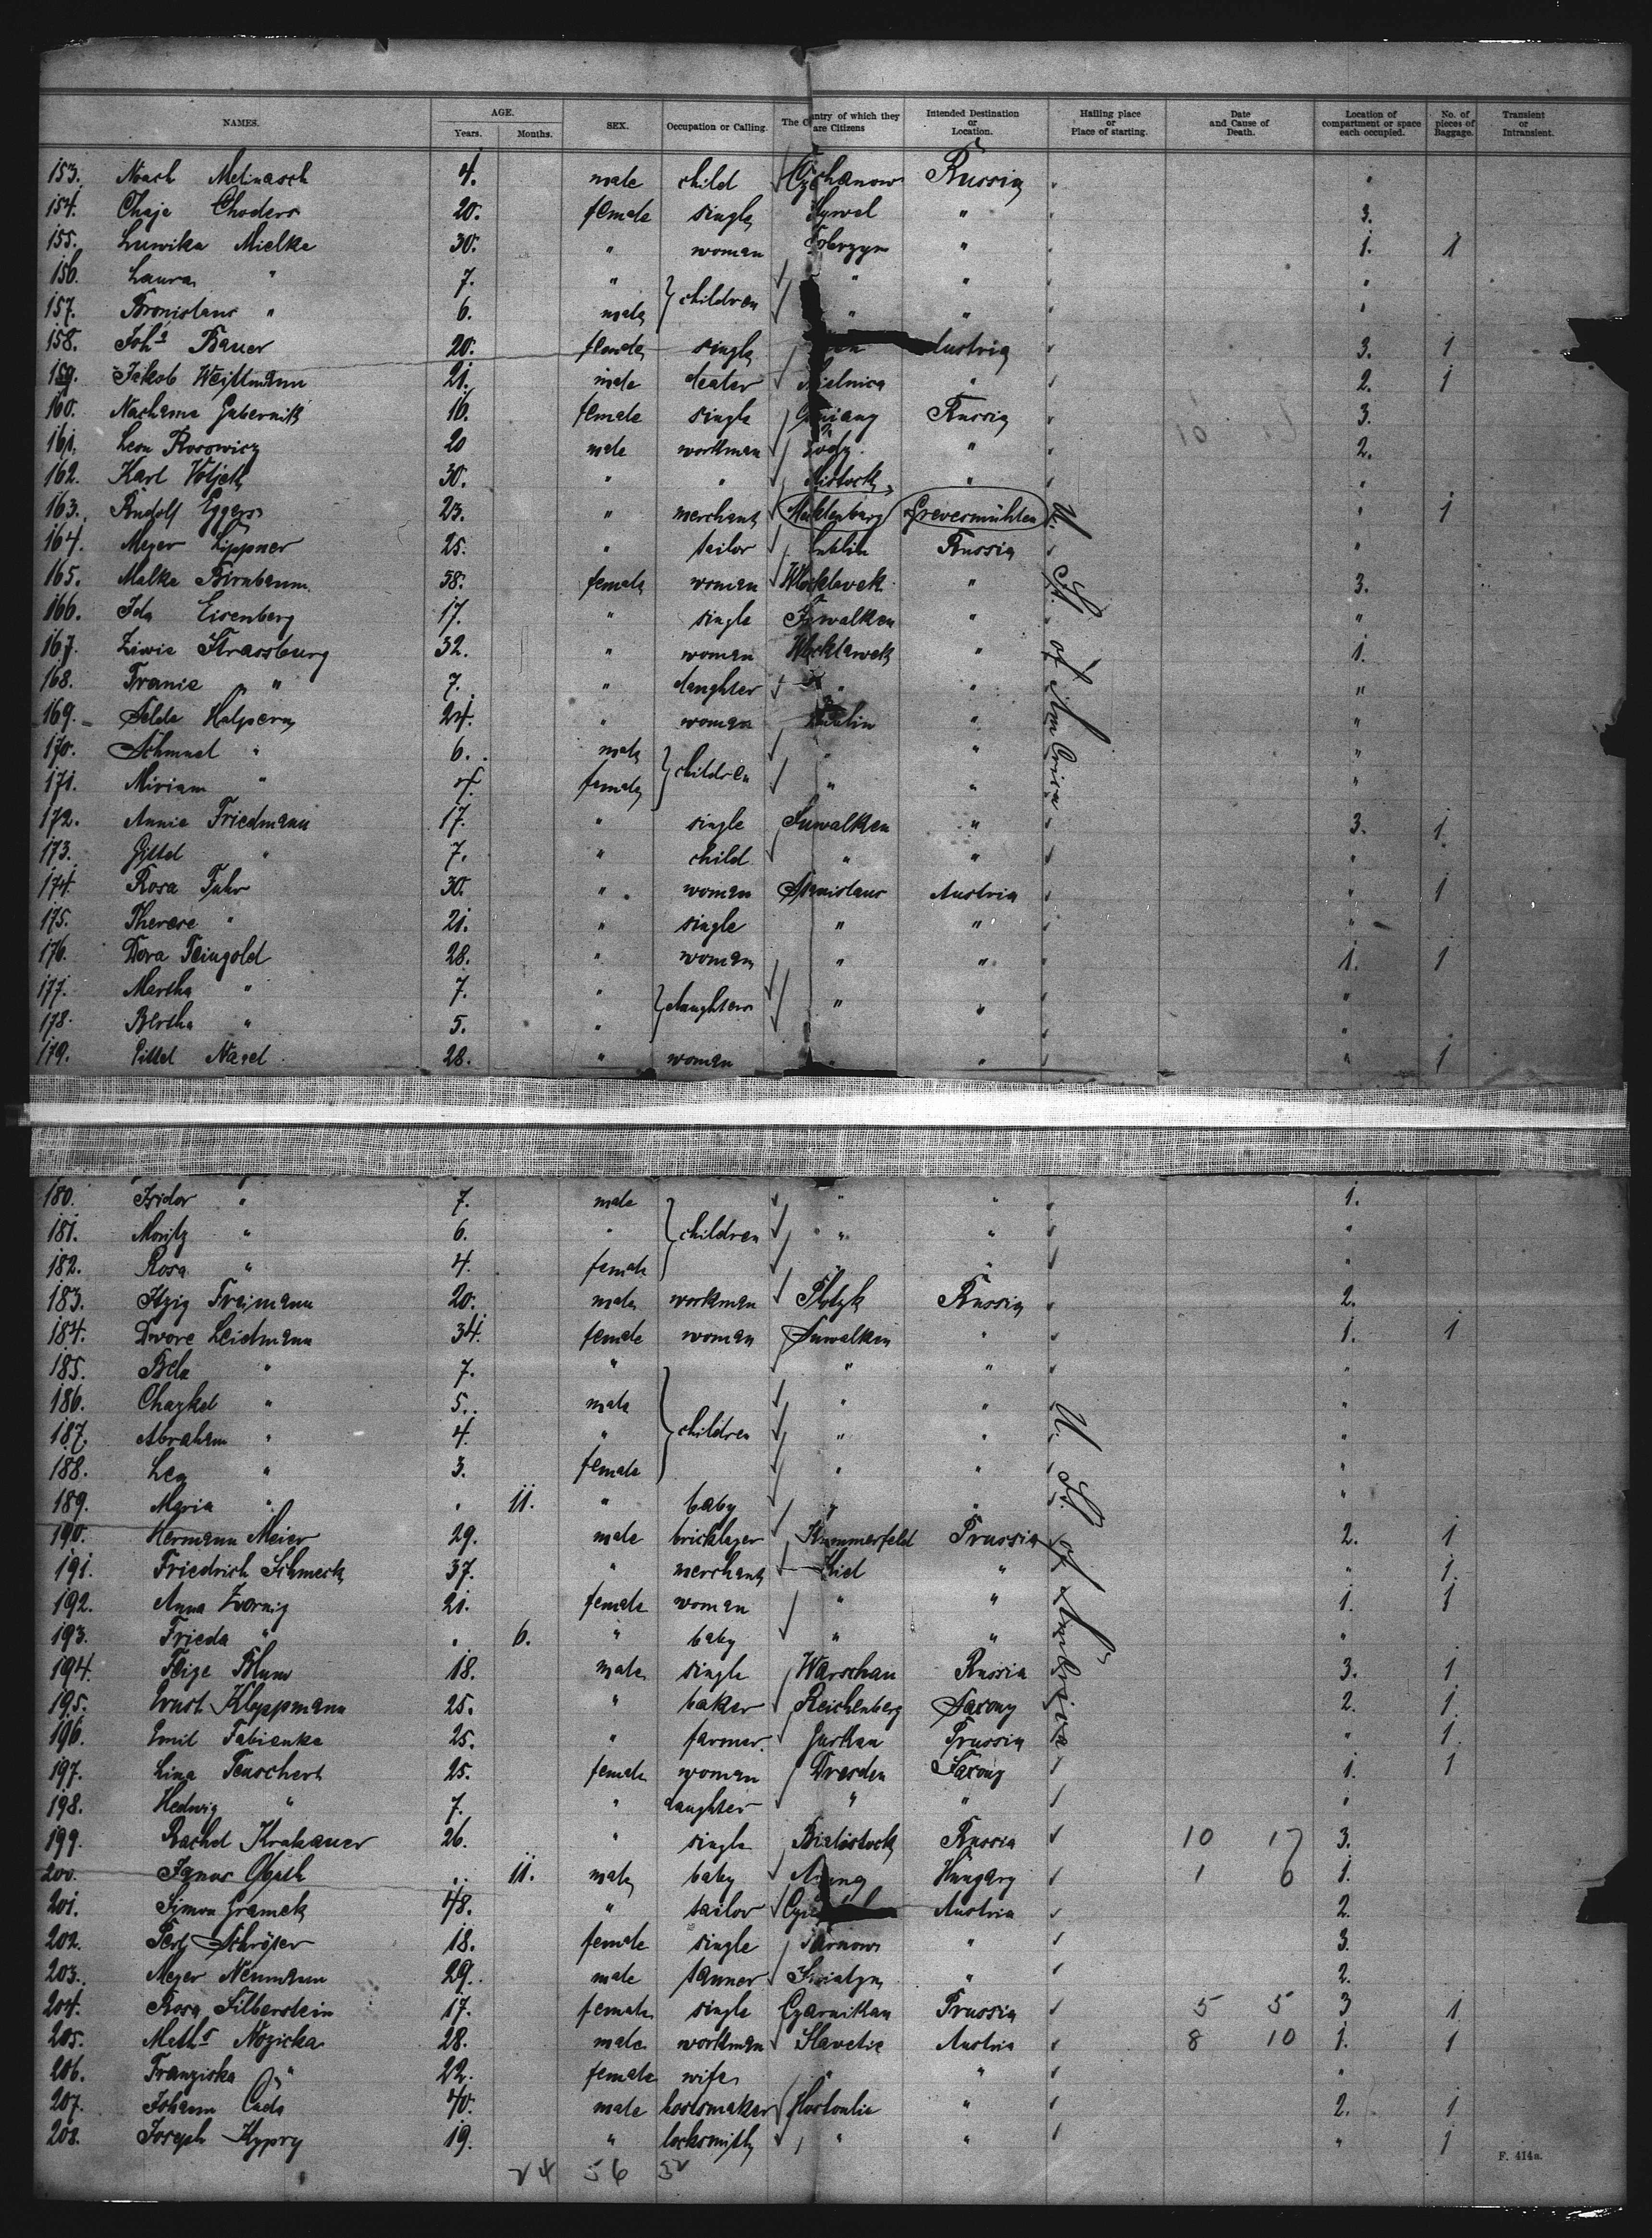 NAMES. AGE. Years. Months. SEX. Occupation or Calling. The Country of which they are Citizens Intended Destination or Location. Hailing place or Place of starting. Date and Cause of Death. Location of compartment or space each occupied. No. of pieces of Baggage. Transient or Intransient.
153. Noach Melinasch 4. male child Russia "
154. Chaje Choders 20. female single " 3.
155. Luwika Mielke 30. " woman Dobrzyn " 1. 1
156. Laura " 7. " children " " "
157. Bronislaus " 6. male " " "
158. Joh.a Bauer 20. female single Austria 3. 1
159. Jakob Wejttmann 21. male Mielnica " 2. 1
160. Nachama Gubernik 16. female single Russia 3.
161. Leon Rosowicz 20 male workman Lodz. " 2.
162. Karl Votjek 30. " " " "
163. Rudolf Eggers 23. " merchant Mecklenburg Grevesmühlen " 1
164. Meyer Lippner 25. " tailor Lublin Russia "
165. Malka Birnbaum 58. female woman Wloclavek " 3.
166. Ida Eisenberg 17. " single Suwalken " "
167. Ziwie Strassburg 32. " woman Wloclawek " 1.
168. Franie " 7. " daughter " " "
169. Selde Halpern 24. " woman Lublin " "
170. Schmuel " 6. male children " " "
171. Miriam " 4. female " " "
172. Annie Friedmann 17. " single Suwalken " 3. 1.
173. Gittel " 7. " child " " "
174. Rosa Fuhr 30. " woman Stanislaus Austria " 1
175. Therese " 21. " single " " "
176. Dora Feingold 28. " woman " " 1. 1
177. Martha " 7. " daughters " " "
178. Bertha " 5. " "
179. Gittel Nasel 28. " woman " " " 1
U. St. of America
180. Isidor " 7. male children " " 1.
181. Moritz " 6. " " " "
182. Rosa " 4. female " "
183. Itzig Freimann 20. male workman Plotzk Russia 2.
184. Dwore Leidmann 34. female woman Suwalken " 1. 1
185. Bela " 7. " children " " "
186. Chazkel " 5. male " " "
187. Abraham " 4. " " " "
188. Lea " 3. female " " "
189. Maria " . 11. " baby " " "
190. Hermann Meier 29. male bricklayer Kummerfeld Prussia 2. 1
191. Friedrich Schmeck 37. " merchant Kiel " " 1.
192. Anna Zornig 21. female woman " " 1. 1
193. Frieda " . 6. " baby " " "
194. Feige Blum 18. male single Warschau Russia 3. 1
195. Ernst Kleppmann 25. " baker Reichenberg Saxony 2. 1
196. Emil Fabianke 25. " farmer Gurkau Prussia " 1.
197. Lina Teuschert 25. female woman Dresden Saxony 1. 1
198. Hedwig " 7. " daughter " " "
199. Rachel Krakauer 26. " single Bialistock Russia 10 17 3.
200. Ignas 11. male baby Hungary 1 6 1.
201. Simon Gramek 48. " tailor Austria 2.
202. Perl Schröser 18. female single Tarnow " 3.
203. Meyer Neumann 29. male tanner Sniatyn " 2.
204. Rosa Silberstein 17. female single Czarnikau Prussia 5 5 3 1
205. Math.s Nozicka 28. male workman Slavetic Austria 8 10 1. 1
206. Franziska " 22. female wife " " "
207. Johann Cada 40. male bootsmaker Hostoulic " 2. 1
208. Joseph Kypry 19. " locksmith " " " 1
U. St. of America
24 56 32
F. 414a.